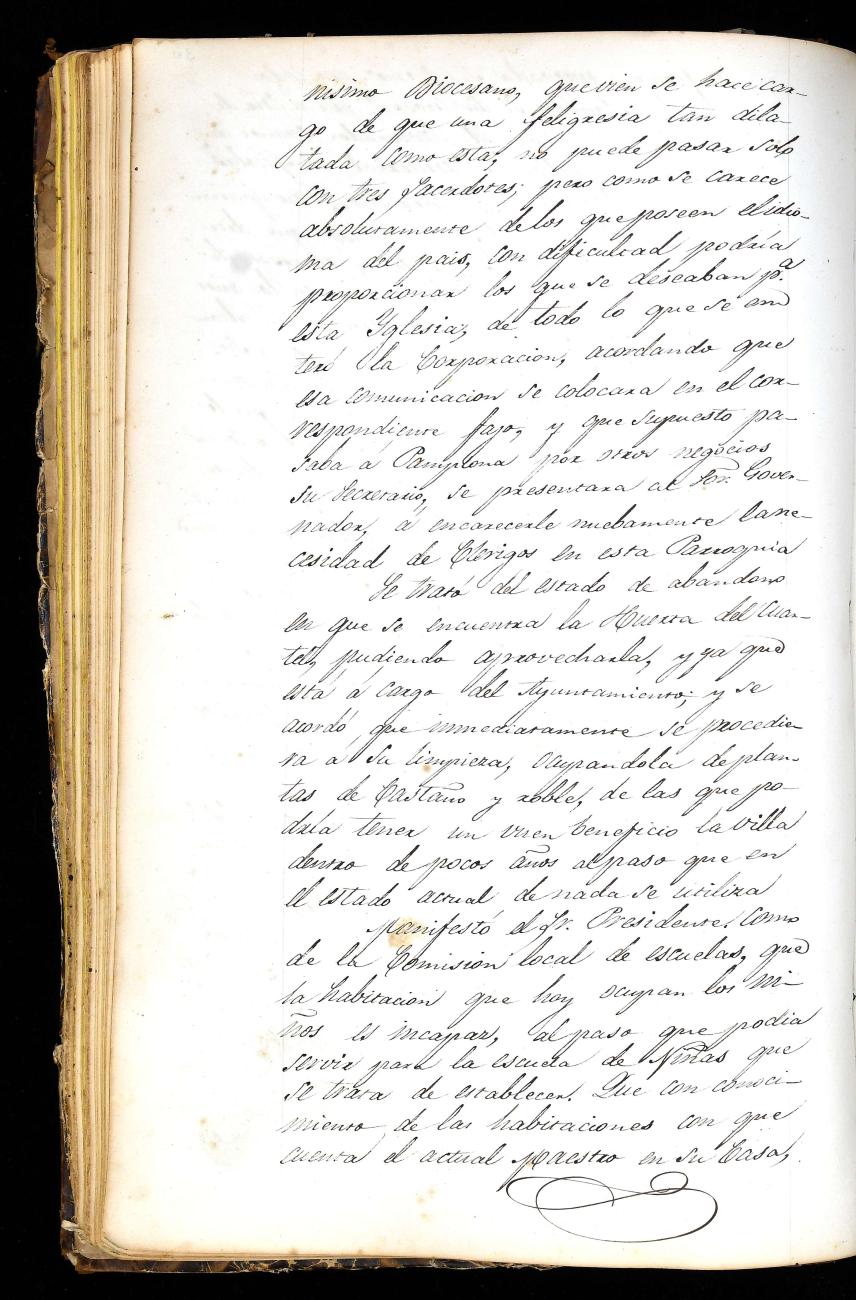 nisimo Diocesano, que vien se hace car-
go de que una feligresia tan dila-
tada como esta, no puede pasar solo
con tres Sacerdotes; pero como se carece
absolutamente de los que poseen el idio-
ma del pais, con dificultad podria
proporcionar los que se deseaban p.ª
esta Yglesia, de todo lo que se en
teró la Corporacion, acordando que
esa comunicacion se colocara en el cor-
respondiente fajo, y que supuesto pa-
saba á Pamplona por otros negocios
su Secretario, se presentara al Sor. Gover-
nador, á encarecerle nuebamente la ne-
cesidad de Clerigos en esta Parroquia
Se trató del estado de abandono
en que se encuentra la Huerta del Cuar-
tel, pudiendo aprovecharla, y ya que
está á cargo del Ayuntamiento; y se
acordó que inmediatamente se procedie-
ra á su limpieza, ocupandola de plan-
tas de Castaño y roble, de las que po-
dria tener un vuen beneficio la villa
dentro de pocos años al paso que en
el estado actual de nada se utiliza
Manifestó el Sr. Presidente, como
de la Comision local de escuelas, que
la habitacion que hoy ocupan los ni-
ños es incapaz, al paso que podia
servir para la escuela de Niñas que
se trata de establecer. Que con conoci-
miento de las habitaciones con que
cuenta el actual Maestro en su Casa,